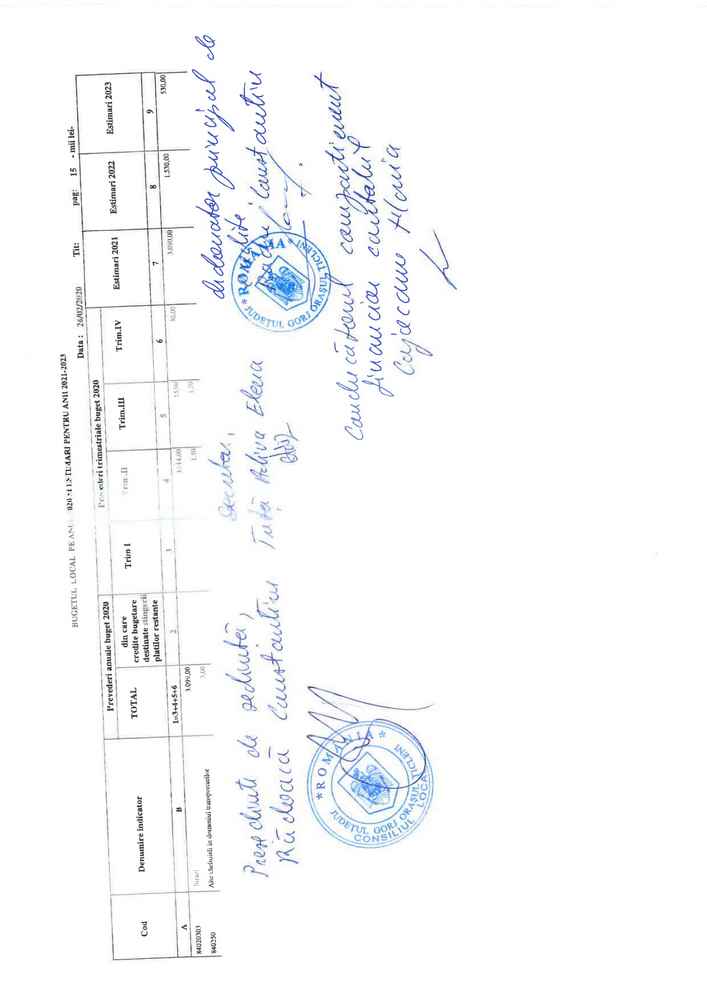 BUGETUL LOCAL PE ANUL 2020 SI ESTIMARI PENTRU ANII 2021-2023
Data : 26/02/2020 Tit: pag: 15 - mii lei-
Cod Denumire indicator Prevederi anuale buget 2020 Prevederi trimestriale buget 2020 Estimari 2021 Estimari 2022 Estimari 2023
TOTAL din care credite bugetare destinate stingerii platilor restante Trim I Trim.II Trim.III Trim.IV
A B 1=3+4+5+6 2 3 4 5 6 7 8 9
84020303 Strazi 3.099,00 30,00 3.090,00 1.530,00 530,00
840250 Alte cheltuieli in domeniul transporturilor 3,00 1,50 1,50
Presedinte de sedinta,
Constantin
Secretar,
Elena
Ordonator principal de
Constantin
Conducatorul compartiment
financiar contabil
Maria
* ROMÂNIA *
JUDEŢUL GORJ ORAŞUL ŢICLENI
CONSILIUL LOCAL
* ROMÂNIA *
JUDEŢUL GORJ ORAŞUL ŢICLENI